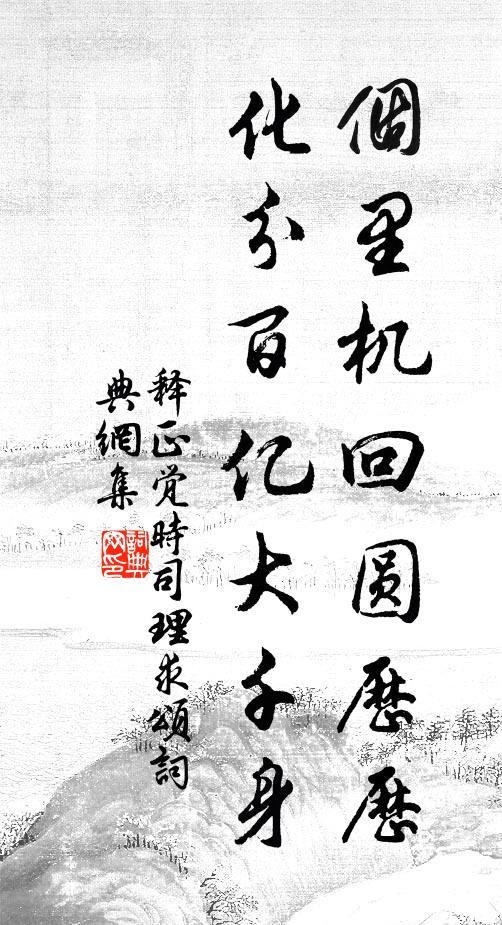 個里机回圆歷歷
化分百亿大千身
释正觉時司理求頌詞
典網集
詞典
网印